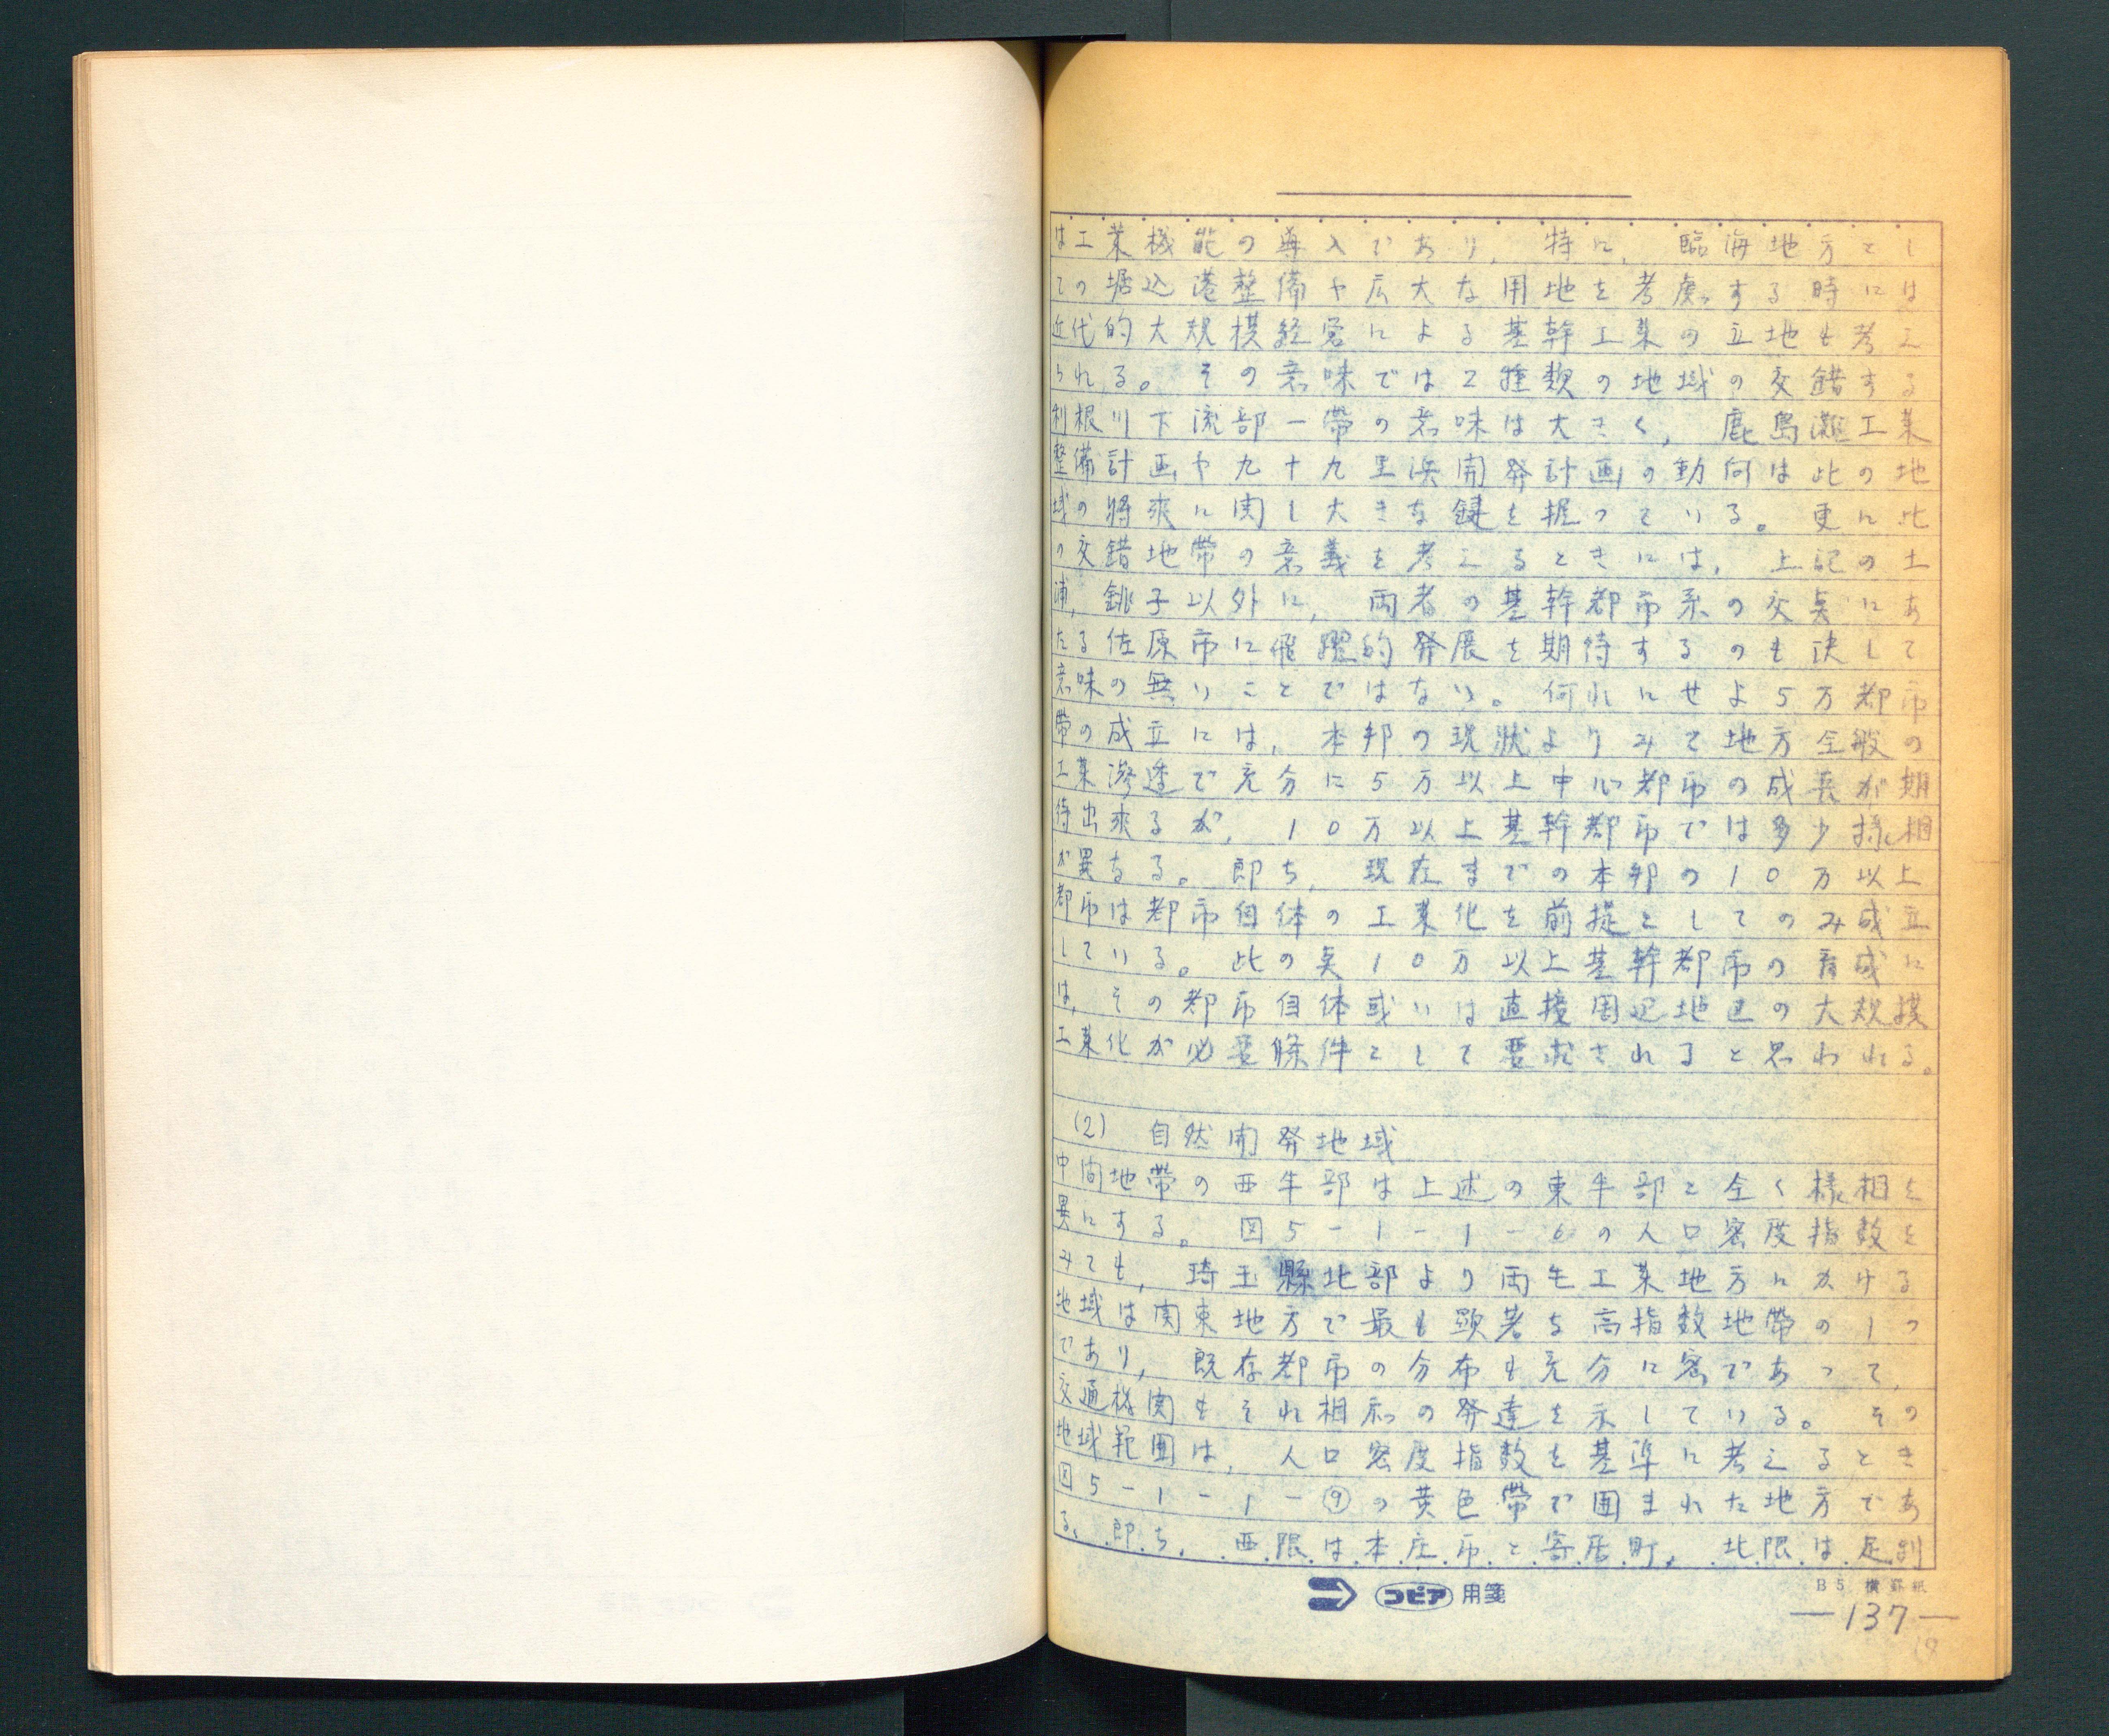 は工業機能の導入であり，特に，臨海地方とし
ての堀込港整備や広大な用地を考慮する時には
近代的大規模経営による基幹工業の立地も考え
られる。その意味では2種類の地域の交錯する
利根川下流部一帯の意味は大きく，鹿島灘工業
整備計画や九十九里浜開発計画の動向は此の地
域の将来に関し大きな鍵を握っている。更に此
の交錯地帯の意義を考えるときには，上記の土
浦，銚子以外に，両者の基幹都市系の交点にあ
たる佐原市に飛躍的発展を期待するのも決して
意味の無いことではない。何れにせよ5万都市
帯の成立には，本邦の現状よりみて地方全般の
工業滲透で充分に5万以上中心都市の成長が期
待出来るが，10万以上基幹都市では多少様相
が異なる。即ち，現在までの本邦の10万以上
都市は都市自体の工業化を前提としてのみ成立
している。此の点10万以上基幹都市の育成に
は，その都市自体或いは直接周辺地区の大規模
工業化が必要條件として要求されると思われる。
(2) 自然開発地域
中間地帯の西半部は上述の東半部と全く様相を
異にする。図5-1-1-6の人口密度指数を
みても，埼玉縣北部より両毛工業地方にかける
地域は関東地方で最も顕著な高指数地帯の1つ
であり，既存都市の分布も充分に密であって，
交通機関もそれ相応の発達を示している。その
地域範囲は，人口密度指数を基準に考えるとき
図5-1-1-⑨の黄色帯で囲まれた地方であ
る。即ち，西限は本庄市と寄居町，北限は足利
コピア 用箋
B5 横罫紙
—137—